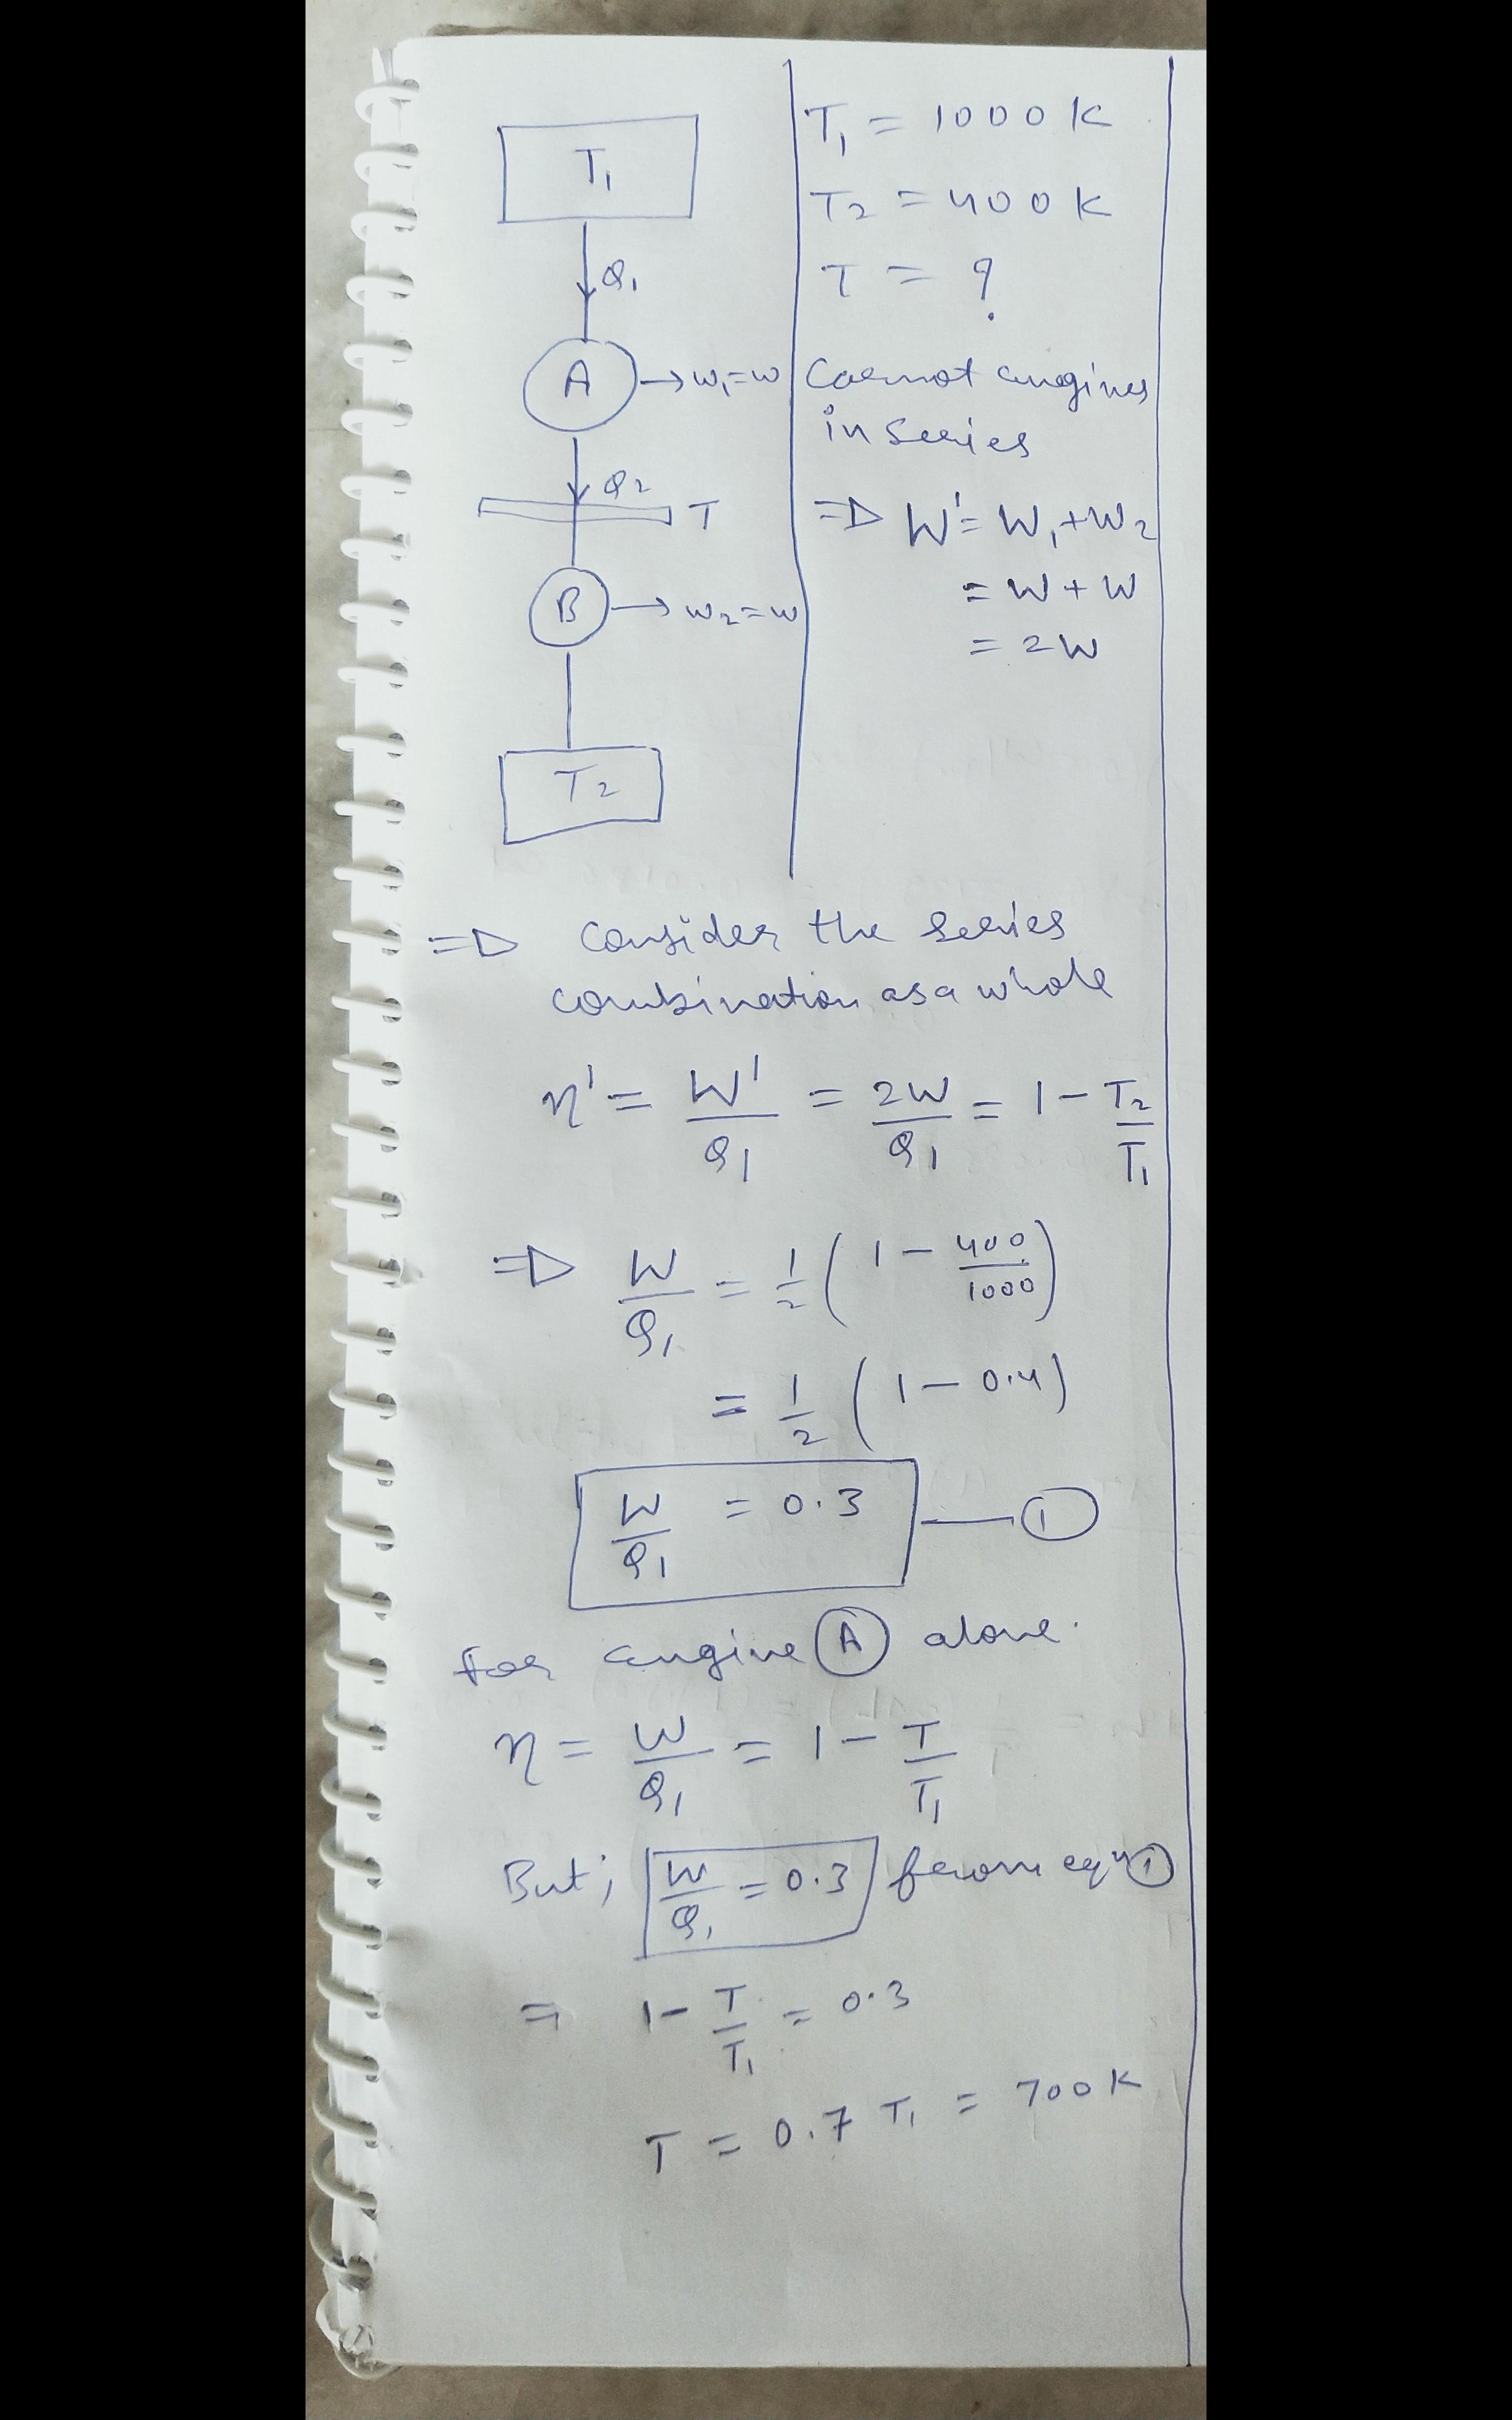 T₁
Q₁
A → W₁ = W
Q₂
T
B → W₂ = W
T₂
T₁ = 1000 K
T₂ = 400 K
T = ?
Carnot engines
in series
⇒ W' = W₁ + W₂
= W + W
= 2W
⇒ Consider the series
combination as a whole
η' = W'/Q₁ = 2W/Q₁ = 1 - T₂/T₁
⇒ W/Q₁ = 1/2 (1 - 400/1000)
= 1/2 (1 - 0.4)
W/Q₁ = 0.3 — ①
For engine Ⓐ alone.
η = W/Q₁ = 1 - T/T₁
But; W/Q₁ = 0.3 from eqⁿ ①
⇒ 1 - T/T₁ = 0.3
T = 0.7 T₁ = 700 K